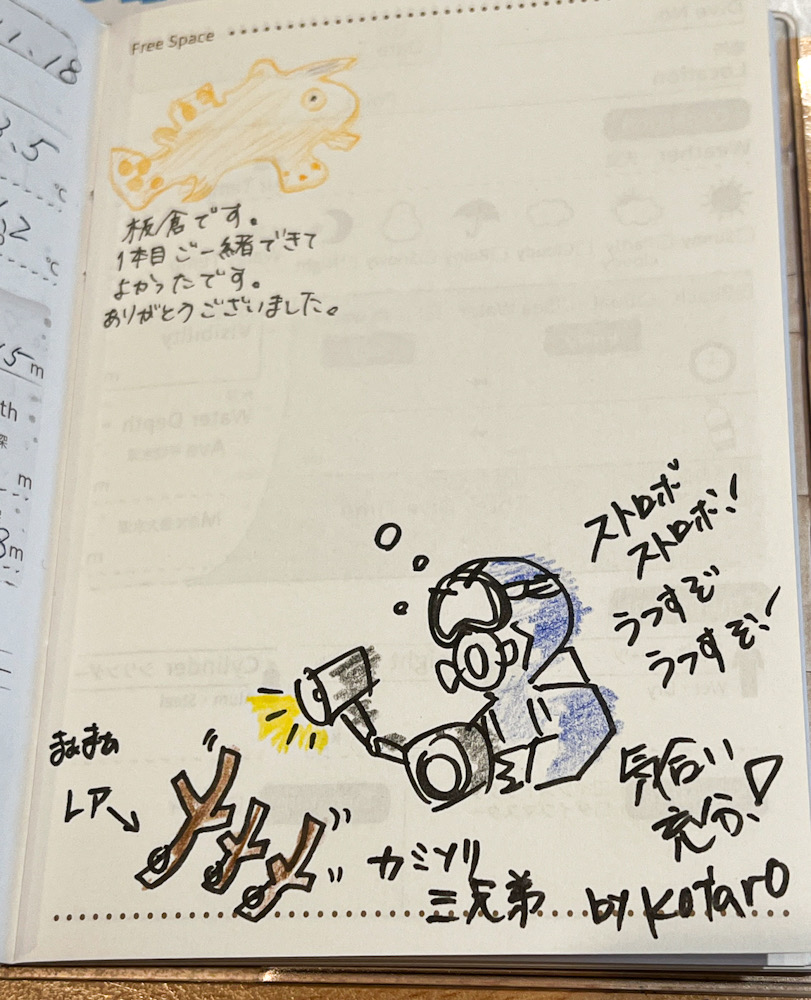 1.18
.5
℃
2
℃
15m
th
m
8m
Free Space
板倉です。
1本目ご一緒できて
よかったです。
ありがとうございました。
ストロボ
ストロボ!
うつすぞ
うつすぞ!
まぁまぁ
レア→
気合い
充分!
カミソリ
三兄弟 by Kotaro